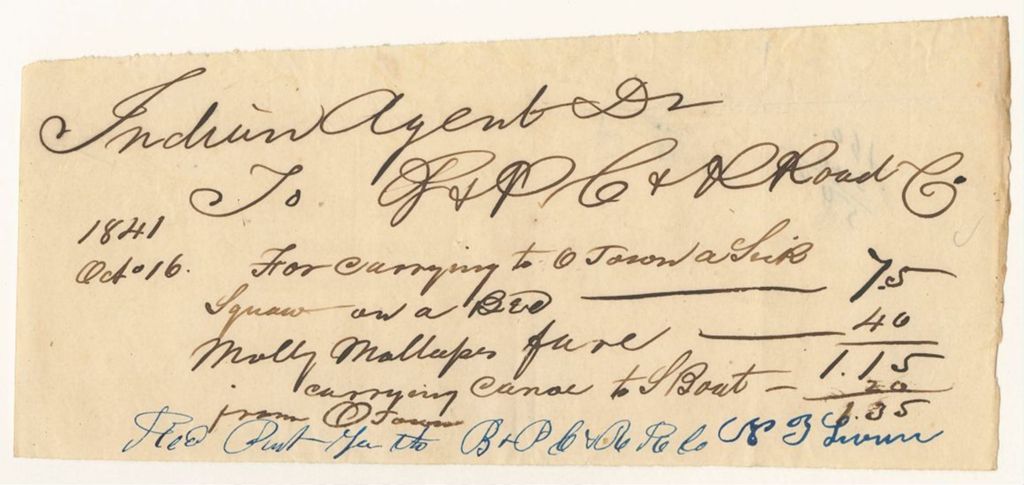 Indian Agent Dr
To B & P C & R Road Co
1841
Octo 16. For carrying to O Town a Sick
Squaw on a Bed 75
Molly Mollasses fare 40
1.15
carrying Canoe to S Boat – 20
from O Town 1.35
Recd for the B & P C & R R Co